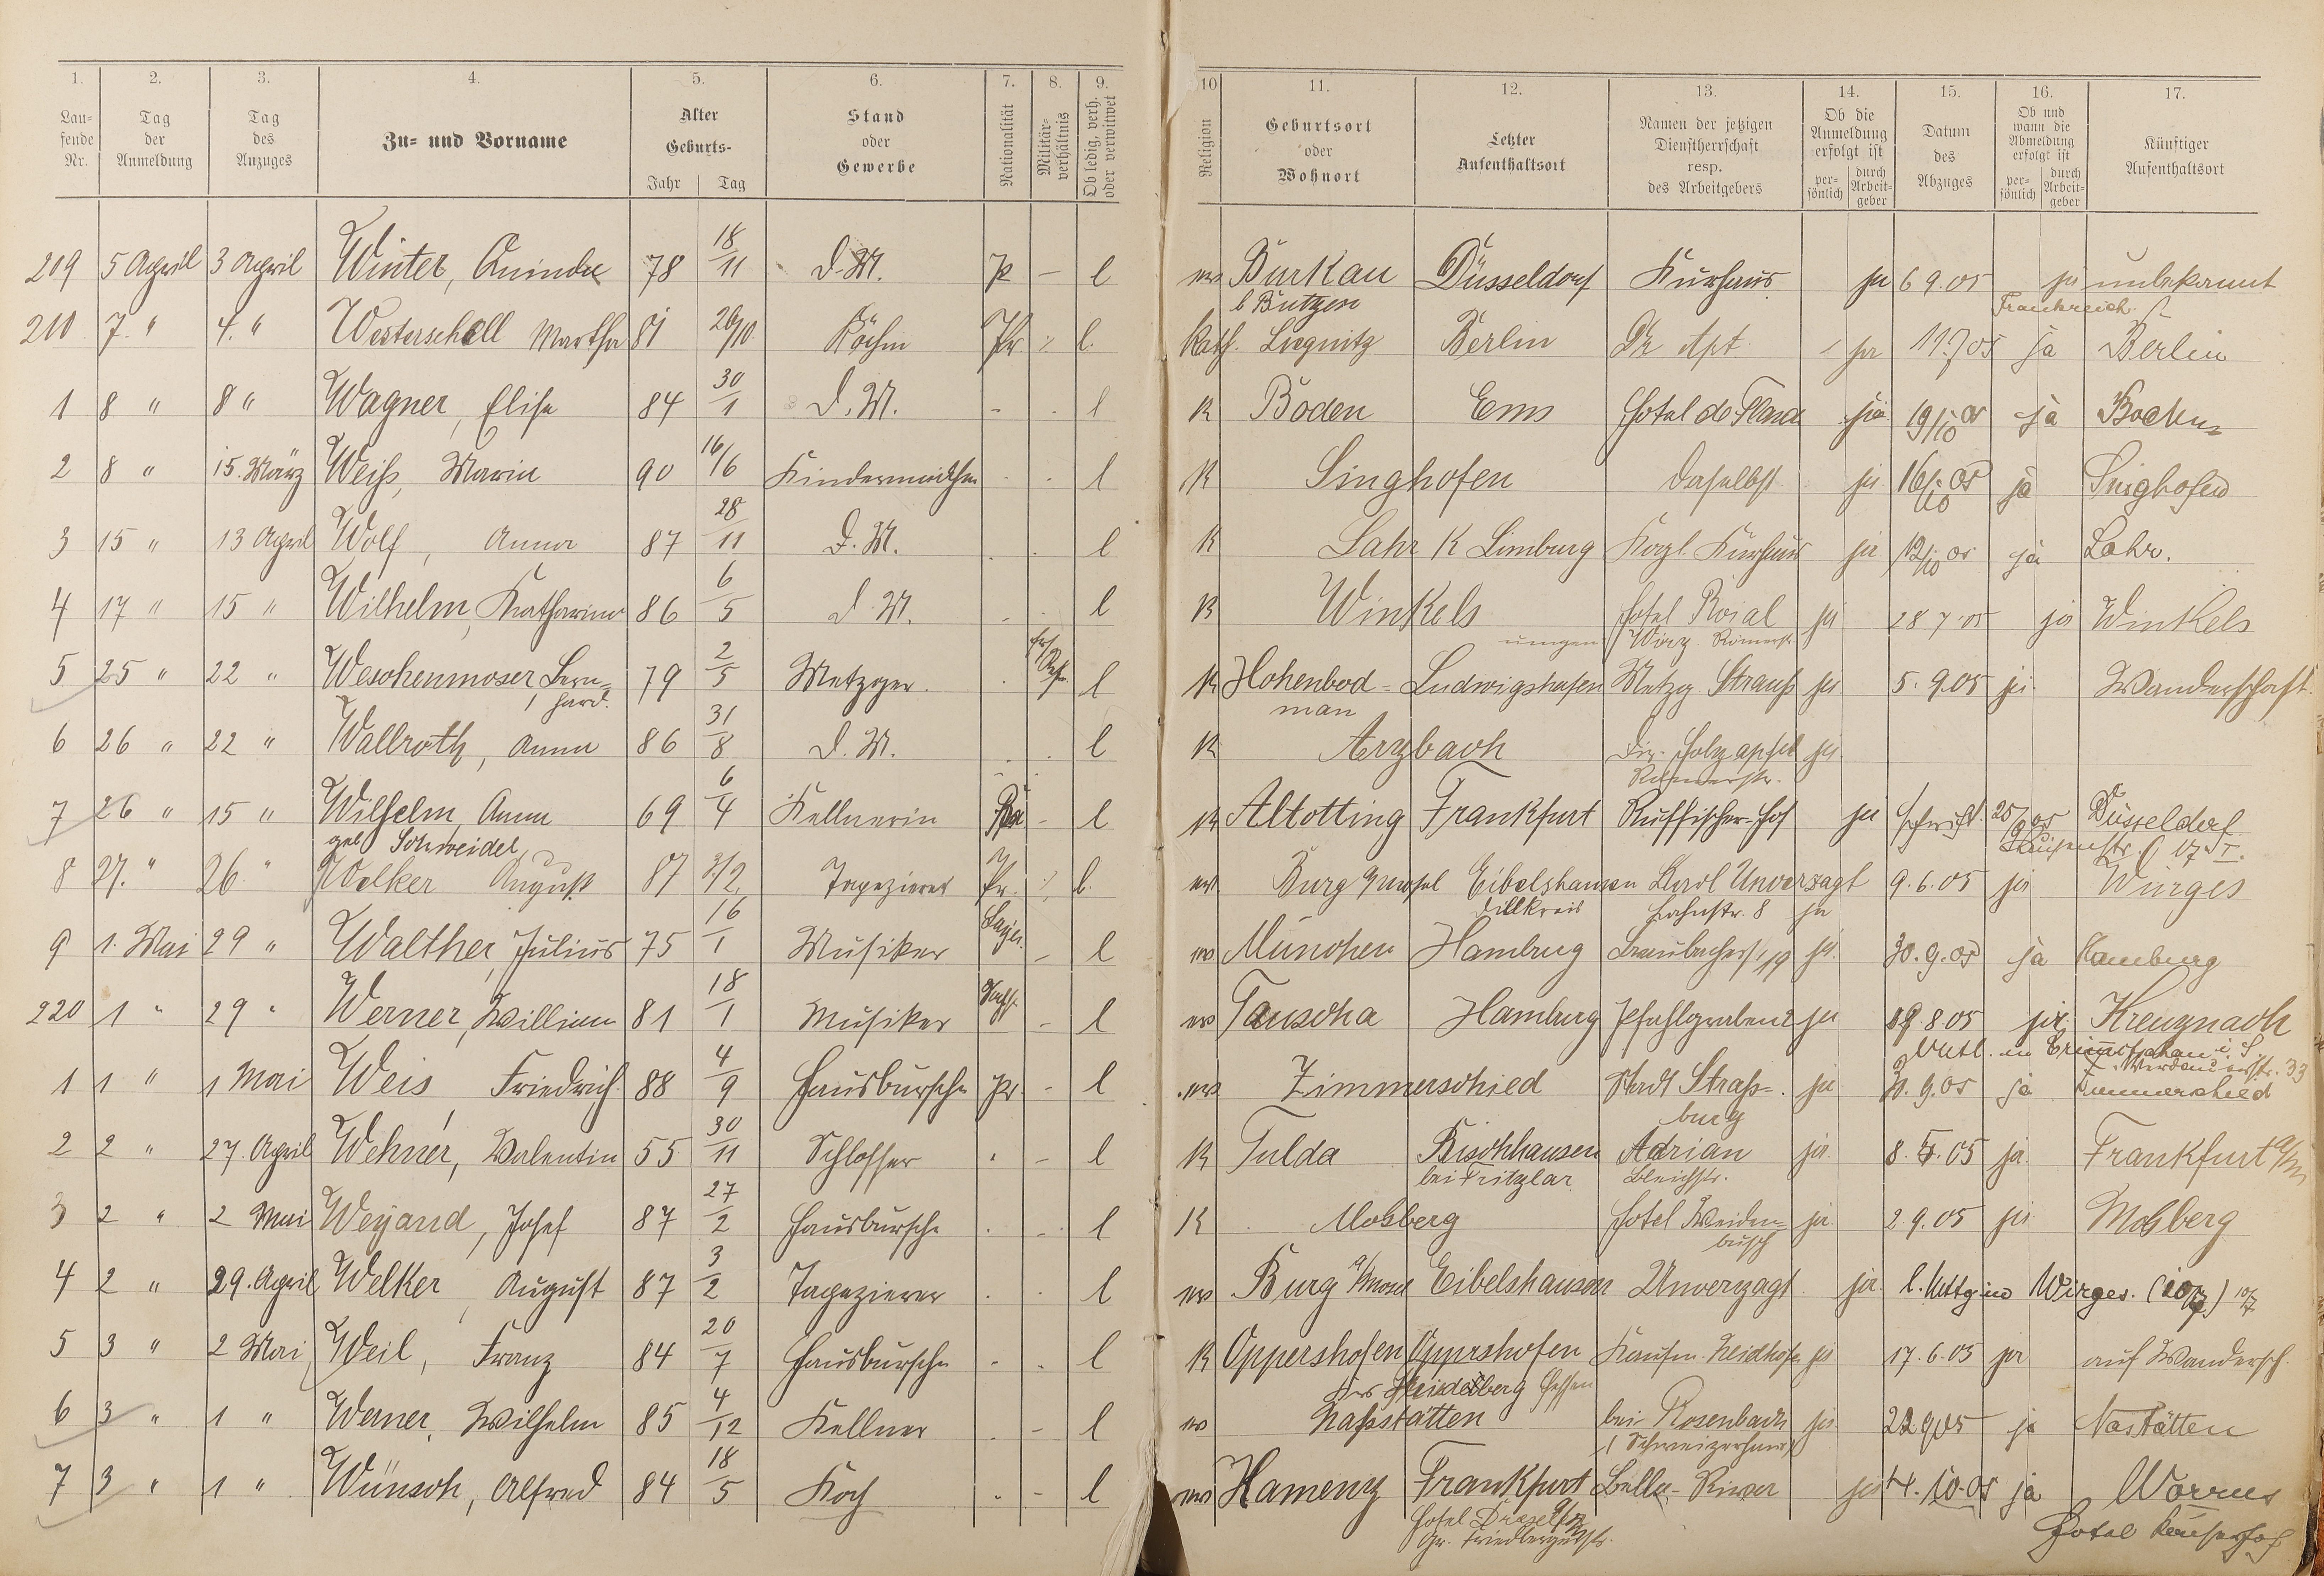 1. 2. 3. 4. 5. 6. 7. 8. 9. 10 11. 12. 13. 14. 15. 16. 17.
Laufende Nr. Tag der Anmeldung Tag des Anzuges Zu- und Vorname Alter Geburts- Jahr Tag Stand oder Gewerbe Nationalität Militärverhältnis Ob ledig, verh. oder verwitwet Religion Geburtsort oder Wohnort Letzter Aufenthaltsort Namen der jetzigen Dienstherrschaft resp. des Arbeitgebers Ob die Anmeldung erfolgt ist persönlich durch Arbeitgeber Datum des Abzuges Ob und wann die Abmeldung erfolgt ist persönlich durch Arbeitgeber Künftiger Aufenthaltsort
209 5 April 3 April Winter, 78 18/11 D. M. P – l Burkau Düsseldorf Kurhaus ja 6 9.05 ja unbekannt
b Butzen Frankreich
210 7. " 4. " Westerschell Martha 81 26/10 Köchin Pr l. Kath. Liegnitz Berlin Dr Apt ja 11.7.05 ja Berlin
1 8 " 8 " Wagner, Elise 84 30/1 D. M. l K Boden Ems Hotel de ja 19/10 05 ja
2 8 " 15. März Weiß, Maria 90 16/6 Kindermädchen l K Singhofen daselbst ja 16/10 05 ja Singhofen
3 15 " 13 April Wolf, Anna 87 28/11 D. M. l K Lahr K Limburg Kgl. Kurhaus ja 12/10 05 ja Lahr.
4 17 " 15 " Wilhelm, Katharina 86 6/5 D. M. l K Winkels Hotel Roial ja 28 7. 05 ja Winkels
Römerstr.
5 25 " 22 " Weschenmoser Bern= 79 2/5 Metzger l K Hohenbod= Ludwigshafen Metzg Strauß ja 5. 9.05 ja. Wanderschaft
hard. man
6 26 " 22 " Wallroth, Anna 86 31/8 D. M. l K Arzbach Dir. Holzapfel ja.
Römerstr.
7 26 " 15 " Wilhelm Anna 69 6/4 Kellnerin – l K Altotting Frankfurt Russischer-Hof ja 25/9 05 Düsseldorf
geb Schweidel
8 27. " 26 " Welker August 87 3/2 Tapezierer Pr. l. Burg Mosel Eibelshausen Karl Unverzagt 9. 6.05 ja Wirges
Dillkreis Bahnstr. 8 ja
9 1. Mai 29 " Walther, Julius 75 16/1 Musiker Bayer. – l München Hambrug 19 ja. 30. 9. 05 ja Hamburg
220 1 " 29 " Werner, William 81 18/1 Musiker Sachs. – l Taucha Hamburg Pfahlgraben 2 ja 8.05 ja Kreuznach
1 1 " 1 Mai Weis Friedrich 88 4/9 Hausbursche Pr. – l Zimmerschied Stadt Straß= ja 9.05 ja Zimmerschied
burg
2 2 " 27. April Wehner, Valentin 55 30/11 Schlosser " – l K Fulda Bischhausen Adrian ja 8. 5. 05 ja Frankfurt a/M
bei Fritzlar Bleichstr.
3 2 " 2 Mai Weyand, Josef 87 27/2 Hausbursche l K Mosberg Hotel Weiden= ja 2. 9. 05 ja Mosberg
busch
4 2 " 29. April Welker, August 87 3/2 Tapezierer l Burg a/Mosel Eibelshausen Unverzagt ja Wirges.
5 3 " 2 Mai Weil, Franz 84 20/7 Hausbursche l K Oppershofen Opprshofen Kaufm. ja 17. 6. 05 ja auf Wandersch.
Hessen
6 3 " 1 " Werner, Wilhelm 85 4/12 Kellner – l Naßstätten bei Rosenbach ja 22 9 05 ja Nastätten
Schweizerhaus
7 3 " 1 " Wünsch, Alfred 84 18/5 Koch – l Kamenz Frankfurt Bella-Riwa ja 4. 10. 05 ja Worms
Hotel a/M
Gr. Friedbergerstr. Hotel Kaiserhof